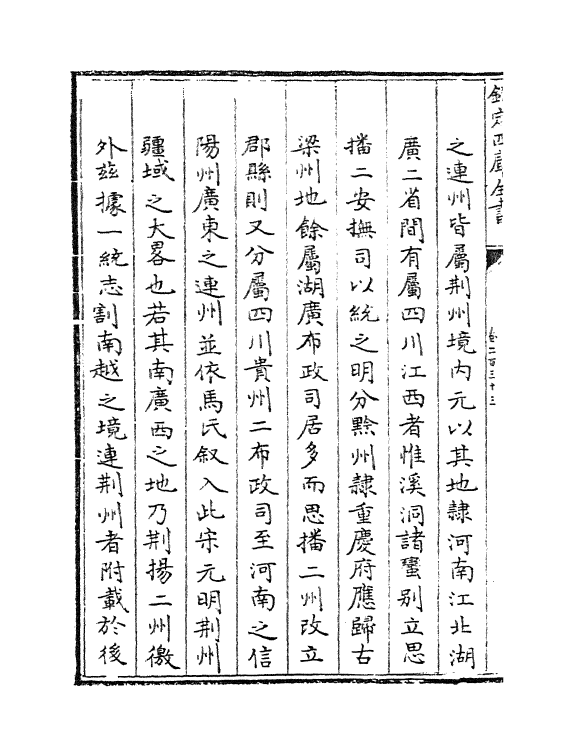 欽定四庫全書
卷二百三十三
之連州皆屬荆州境內元以其地隷河南江北湖
廣二省間有屬四川江西者惟溪洞諸蠻别立思
播二安撫司以統之明分黔州隷重慶府應歸古
梁州地餘屬湖廣布政司居多而思播二州改立
郡縣則又分屬四川貴州二布政司至河南之信
陽州廣東之連州並依馬氏叙入此宋元明荆州
疆域之大畧也若其南廣西之地乃荆揚二州徼
外兹據一統志割南越之境連荆州者附載於後